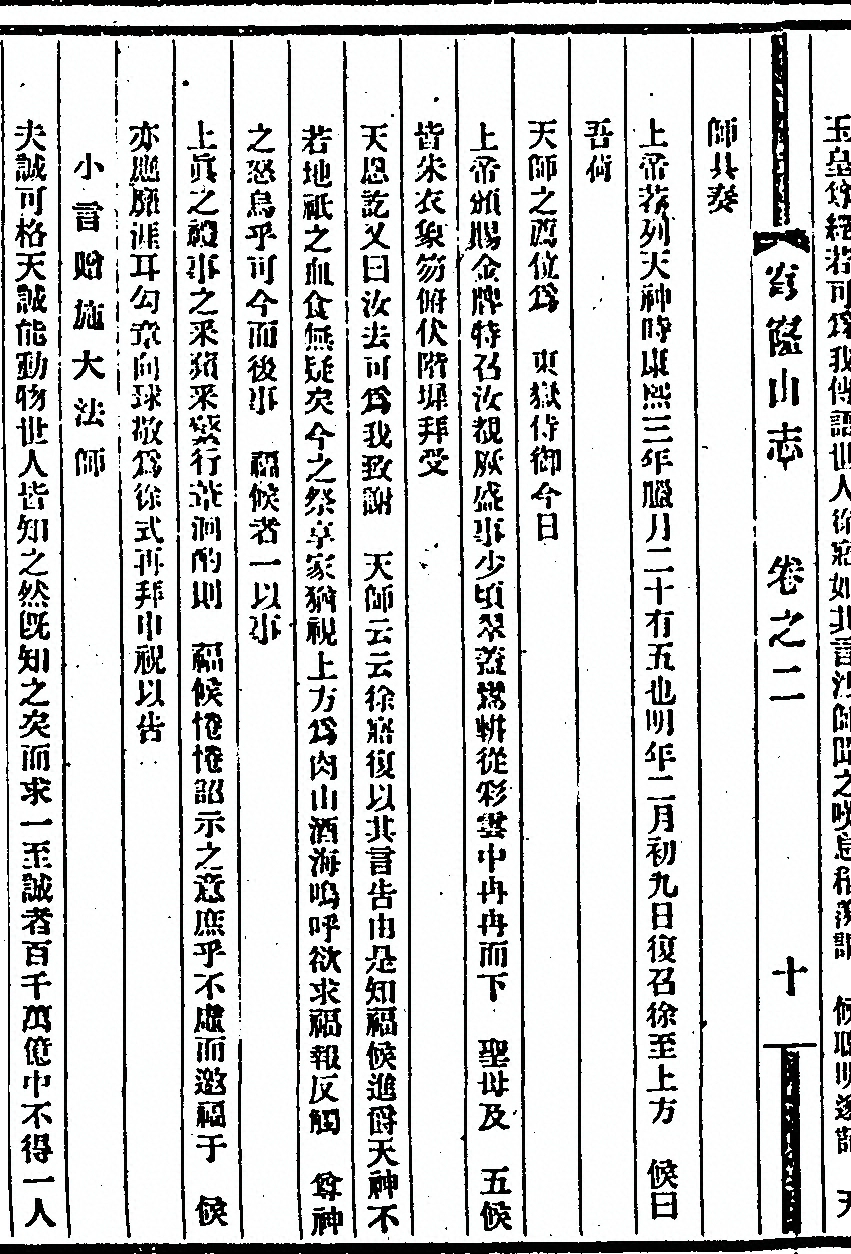 玉皇尊經若可爲我傳語世人徐寤如其言法師聞之嗟息稱異謂　候聰明遂請　天
穹窿山志　卷之二　十
師具奏
上帝荐列天神時康熙三年臘月二十有五也明年二月初九日復召徐至上方　候曰
吾荷
天師之薦位爲　東嶽侍御今日
上帝頒賜金牌特召汝覩厥盛事少頃翠蓋鸞軿從彩雲中冉冉而下　聖母及　五候
皆朱衣象笏俯伏階墀拜受
天恩訖又曰汝去可爲我致謝　天師云云徐寤復以其言告由是知福候進爵天神不
若地祇之血食無疑矣今之祭享家猶視上方爲肉山酒海嗚呼欲求福報反觸　尊神
之怒烏乎可今而後事　福候者一以事
上眞之禮事之采蘋采蘩行葦泂酌則　福候惓惓詔示之意庶乎不虛而邀福于　候
亦應靡涯耳勾章向球敬爲徐式再拜申祝以告
小言贈施大法師
夫誠可格天誠能動物世人皆知之然旣知之矣而求一至誠者百千萬億中不得一人